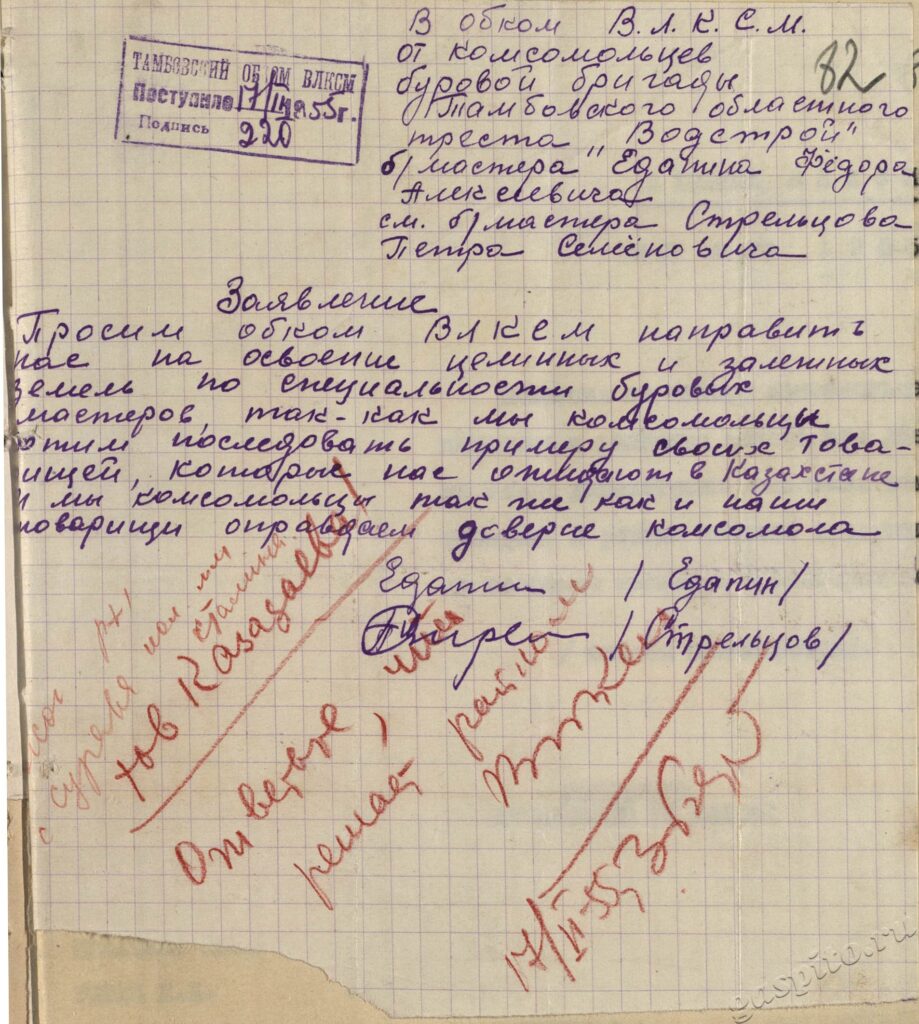 В обком В.Л.К.С.М.
от комсомольцев
буровой бригады
Тамбовского областного
треста „Водстрой"
б/мастера Едапина Фёдора
Алексеевича
см. б/мастера Стрельцова
Петра Семёновича
82
ТАМБОВСКИЙ ОБКОМ ВЛКСМ
Поступило 17/II 1955г.
Подпись 220
Заявление
Просим обком ВЛКСМ направить
нас на освоение целинных и залежных
земель по специальности буровых
мастеров, так-как мы комсомольцы
хотим последовать примеру своих това-
рищей, которые нас ожидают в Казахстане
и мы комсомольцы так же как и наши
товарищи оправдаем доверие комсомола
Едапин /Едапин/
/Стрельцов/
тов Казазаеву!
Ответьте, что
решает райком
ВЛКСМ
17/II-55г
gaspito.ru